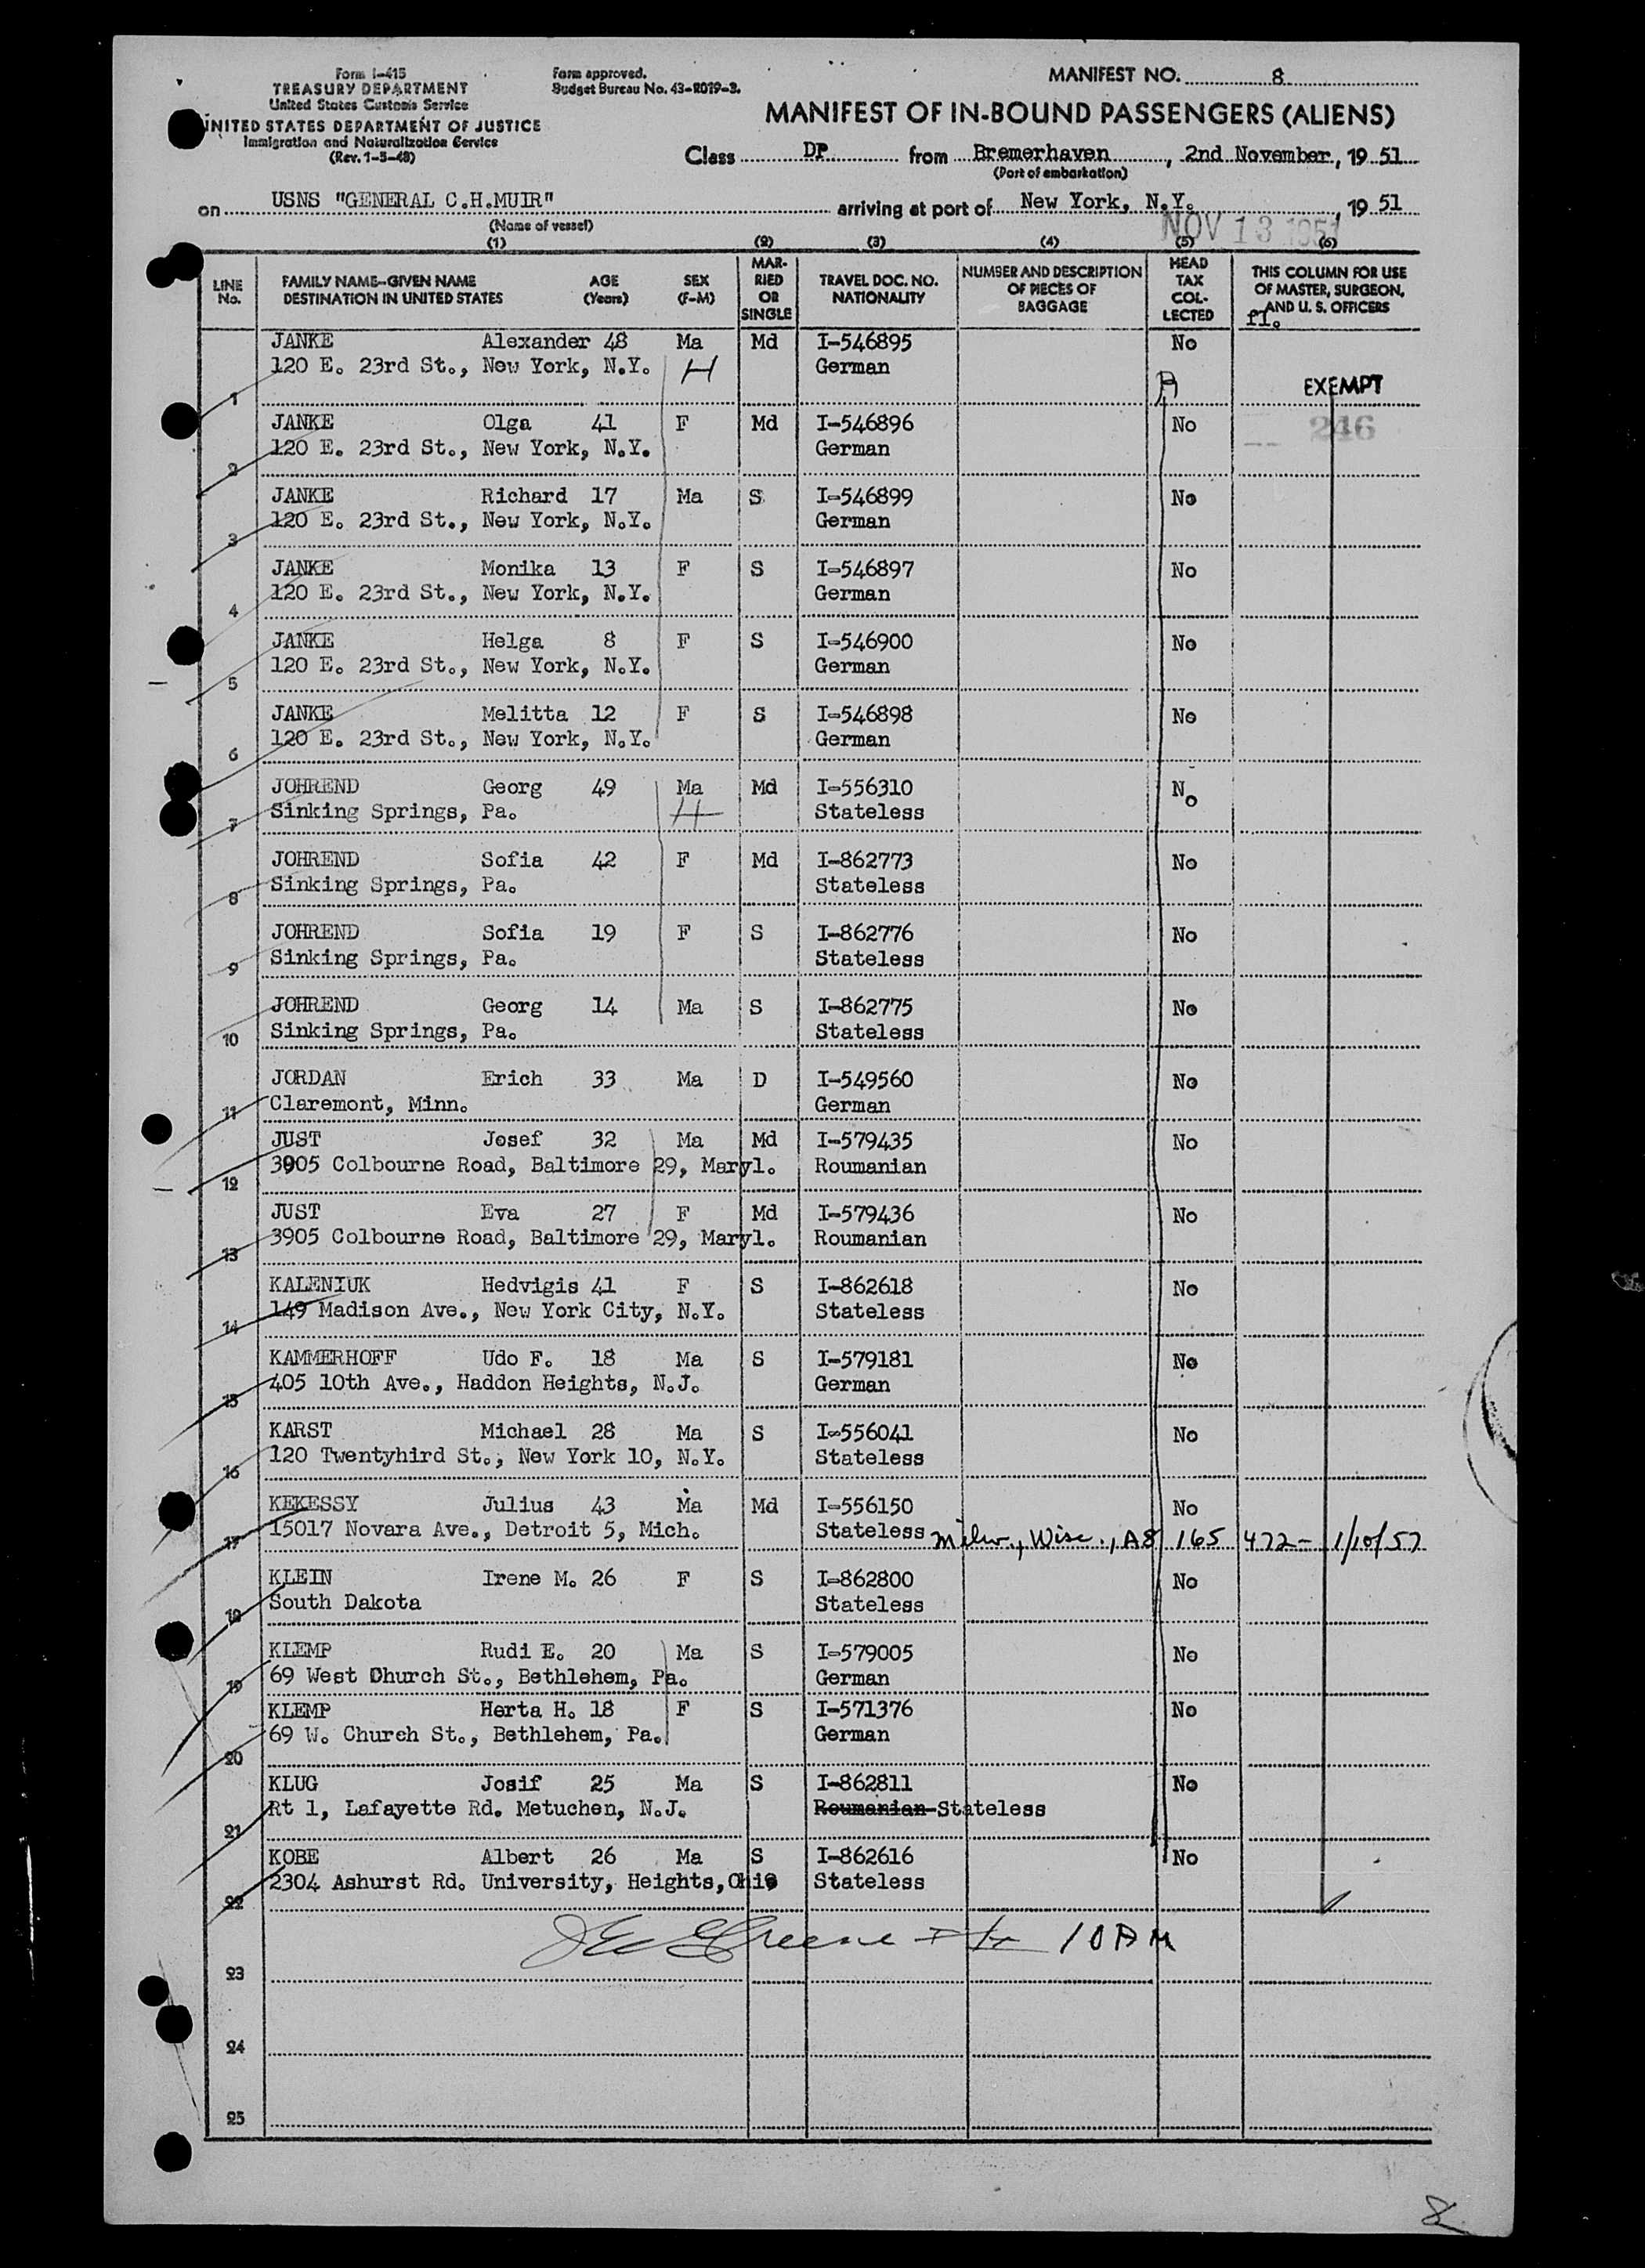 Form I-415
TREASURY DEPARTMENT
United States Customs Service
UNITED STATES DEPARTMENT OF JUSTICE
Immigration and Naturalization Service
(Rev. 1-5-48)
Form approved.
Budget Bureau No. 43-R019-3.
MANIFEST NO. 8
MANIFEST OF IN-BOUND PASSENGERS (ALIENS)
Class DP from Bremerhaven, 2nd November, 19 51
(Port of embarkation)
on USNS "GENERAL C.H.MUIR" arriving at port of New York, N.Y., 19 51
(Name of vessel)
NOV 13 1951
(1) (2) (3) (4) (5) (6)
LINE No. FAMILY NAME--GIVEN NAME DESTINATION IN UNITED STATES AGE (Years) SEX (F-M) MARRIED OR SINGLE TRAVEL DOC. NO. NATIONALITY NUMBER AND DESCRIPTION OF PIECES OF BAGGAGE HEAD TAX COLLECTED THIS COLUMN FOR USE OF MASTER, SURGEON, AND U. S. OFFICERS
JANKE Alexander 48 Ma Md I-546895 No
1 120 E. 23rd St., New York, N.Y. H German EXEMPT
JANKE Olga 41 F Md I-546896 No 246
2 120 E. 23rd St., New York, N.Y. German
JANKE Richard 17 Ma S I-546899 No
3 120 E. 23rd St., New York, N.Y. German
JANKE Monika 13 F S I-546897 No
4 120 E. 23rd St., New York, N.Y. German
JANKE Helga 8 F S I-546900 No
5 120 E. 23rd St., New York, N.Y. German
JANKE Melitta 12 F S I-546898 No
6 120 E. 23rd St., New York, N.Y. German
JOHREND Georg 49 Ma Md I-556310 No
7 Sinking Springs, Pa. H Stateless
JOHREND Sofia 42 F Md I-862773 No
8 Sinking Springs, Pa. Stateless
JOHREND Sofia 19 F S I-862776 No
9 Sinking Springs, Pa. Stateless
JOHREND Georg 14 Ma S I-862775 No
10 Sinking Springs, Pa. Stateless
JORDAN Erich 33 Ma D I-549560 No
11 Claremont, Minn. German
JUST Josef 32 Ma Md I-579435 No
12 3905 Colbourne Road, Baltimore 29, Maryl. Roumanian
JUST Eva 27 F Md I-579436 No
13 3905 Colbourne Road, Baltimore 29, Maryl. Roumanian
KALENIUK Hedvigis 41 F S I-862618 No
14 149 Madison Ave., New York City, N.Y. Stateless
KAMMERHOFF Udo F. 18 Ma S I-579181 No
15 405 10th Ave., Haddon Heights, N.J. German
KARST Michael 28 Ma S I-556041 No
16 120 Twentyhird St., New York 10, N.Y. Stateless
KEKESSY Julius 43 Ma Md I-556150 No
17 15017 Novara Ave., Detroit 5, Mich. Stateless Milw., Wisc., A8 165 472- 1/10/57
KLEIN Irene M. 26 F S I-862800 No
18 South Dakota Stateless
KLEMP Rudi E. 20 Ma S I-579005 No
19 69 West Church St., Bethlehem, Pa. German
KLEMP Herta H. 18 F S I-571376 No
20 69 W. Church St., Bethlehem, Pa. German
KLUG Josif 25 Ma S I-862811 No
21 Rt 1, Lafayette Rd. Metuchen, N.J. Roumanian Stateless
KOBE Albert 26 Ma S I-862616 No
22 2304 Ashurst Rd. University, Heights, Ohio Stateless
Greene 10 AM
23
24
25
8